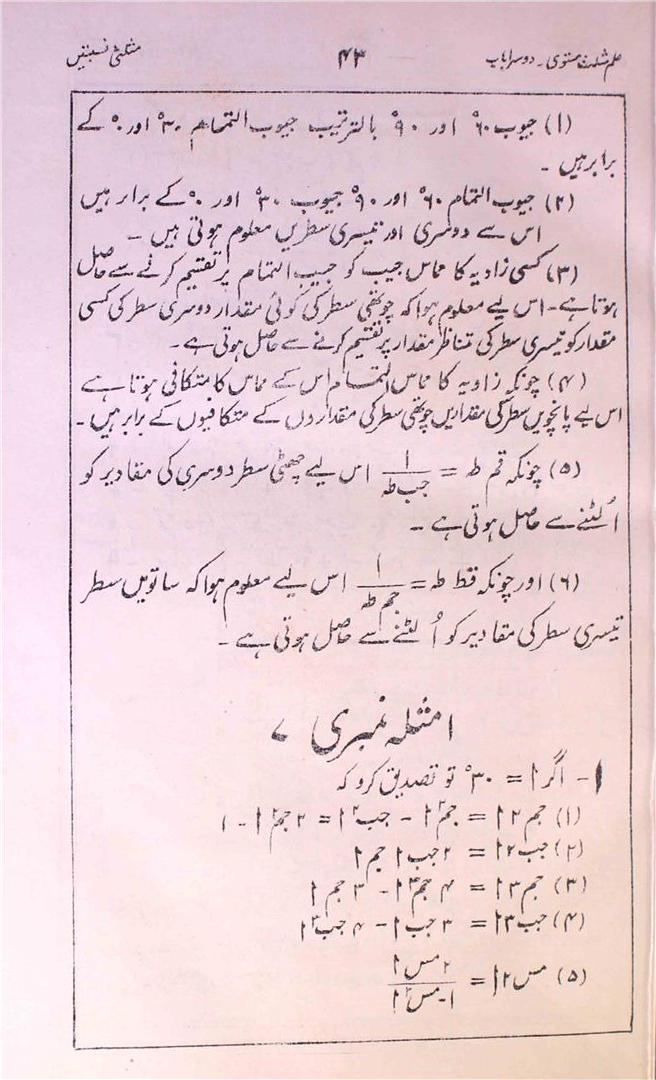 علم مثلث مستوی ۔ دوسرا باب ۴۳ مثلثی نسبتیں
(۱) جیوب ۶۰° اور ۹۰° بالترتیب جیوب التمام ۳۰° اور ۰° کے
برابر ہیں ۔
(۲) جیوب التمام ۶۰° اور ۹۰° جیوب ۳۰° اور ۰° کے برابر ہیں
اس سے دوسری اور تیسری سطریں معلوم ہوتی ہیں ۔
(۳) کسی زاویہ کا مماس جیب کو جیب التمام پر تقسیم کرنے سے حاصل
ہوتا ہے ۔ اس لیے معلوم ہوا کہ چوتھی سطر کی کوئی مقدار دوسری سطر کی کسی
مقدار کو تیسری سطر کی متناظر مقدار پر تقسیم کرنے سے حاصل ہوتی ہے ۔
(۴) چونکہ زاویہ کا مماس التمام اس کے مماس کا متکافی ہوتا ہے
اس لیے پانچویں سطر کی مقداریں چوتھی سطر کی مقداروں کے متکافیوں کے برابر ہیں ۔
(۵) چونکہ قم طہ = ۱/جب طہ اس لیے چھٹی سطر دوسری کی مقادیر کو
اُلٹنے سے حاصل ہوتی ہے ۔
(۶) اور چونکہ قط طہ = ۱/جم طہ اس لیے معلوم ہوا کہ ساتویں سطر
تیسری سطر کی مقادیر کو اُلٹنے سے حاصل ہوتی ہے ۔
امثلہ نمبری ۷
۱- اگر ا = ۳۰° تو تصدیق کرو کہ
(۱) جم ۲ا = جم۲ ا - جب۲ ا = ۲ جم۲ ا - ۱
(۲) جب ۲ا = ۲ جب ا جم ا
(۳) جم ۳ا = ۴ جم۳ ا - ۳ جم ا
(۴) جب ۳ا = ۳ جب ا - ۴ جب۳ ا
(۵) مس ۲ا = ۲ مس ا / ۱-مس۲ ا